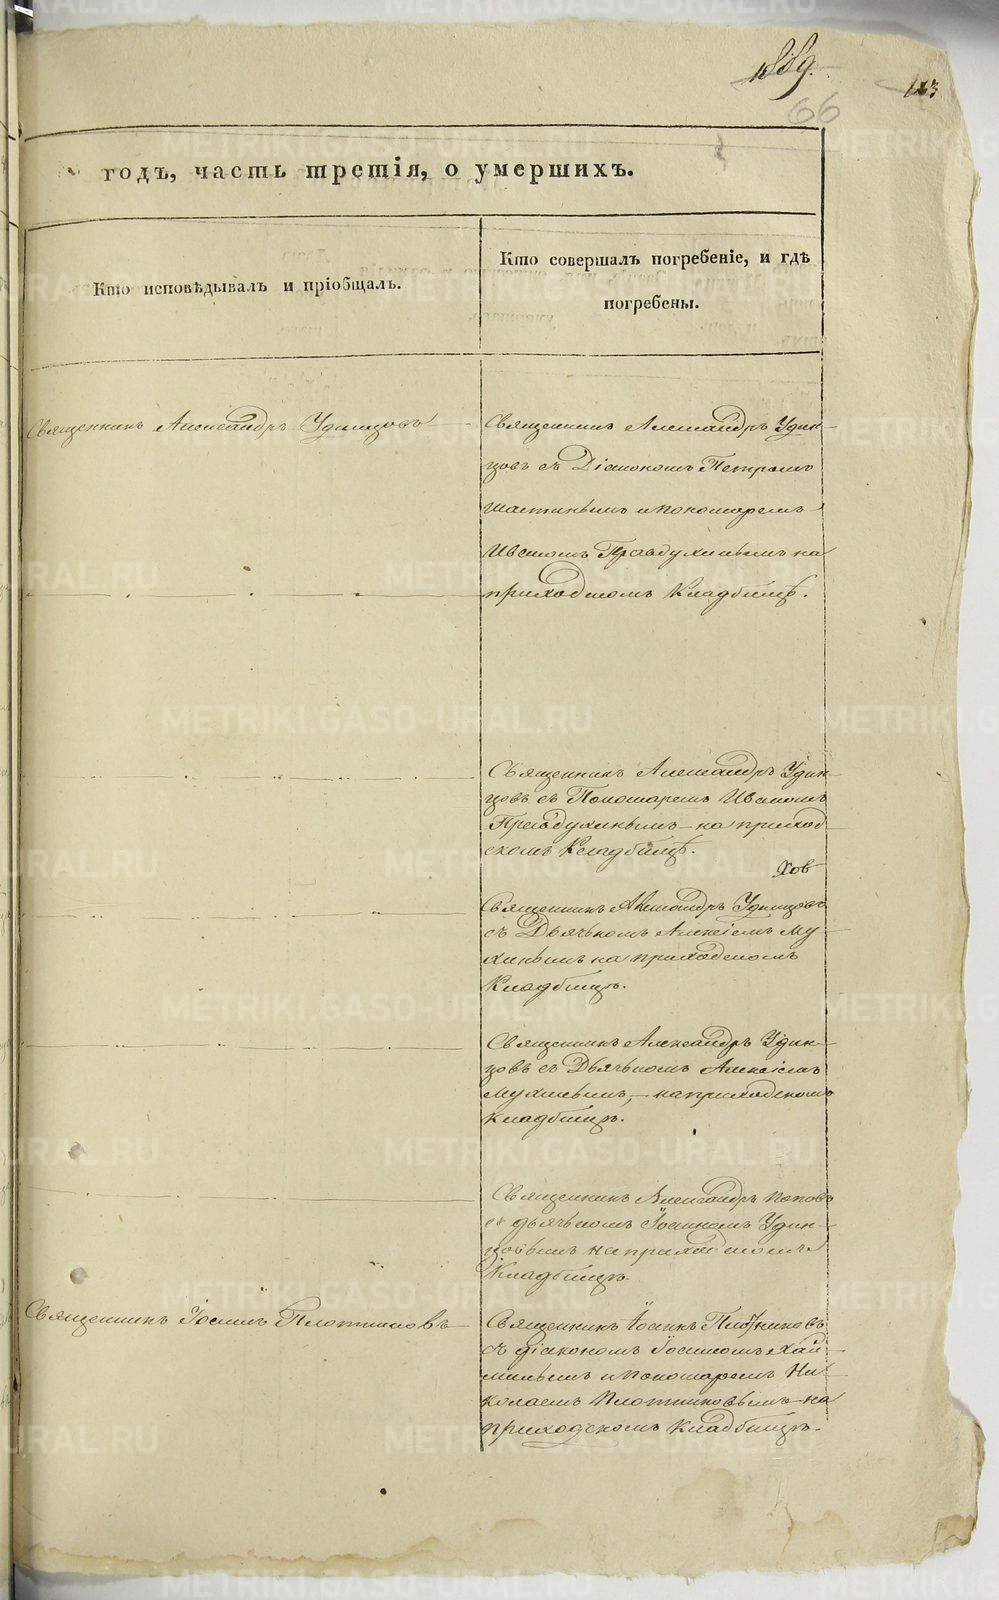 1889.
66
163
годъ, часть третія, о умершихъ.
Кто исповѣдывалъ и пріобщалъ.
Кто совершалъ погребеніе, и гдѣ
погребены.
Священникъ Александръ Удинцовъ
Священникъ Александръ Удин-
цовъ съ Діакономъ Петромъ
и пономаремъ
Иваномъ Правдухинымъ на
приходскомъ Кладбищѣ.
Священникъ Александръ Удин-
цовъ съ Пономаремъ Иваномъ
Правдухинымъ – на приход-
скомъ Кладбищѣ.
Хов
Священникъ Александръ Удинцовъ
съ Дьячкомъ Алексіемъ Му-
хинымъ на приходскомъ
Кладбищѣ.
Священникъ Александръ Удин-
цовъ съ Дьячкомъ Алексіемъ
Мухинымъ, – на приходскомъ
Кладбищѣ.
Священникъ Александръ Поповъ
съ дьячкомъ Іоанномъ Удин-
цовымъ на приходскомъ
Кладбищѣ.
Священникъ Іоаннъ Плотниковъ
Священникъ Іоаннъ Плотниковъ
съ діакономъ Іоанномъ
и пономаремъ Ни-
колаемъ Плотниковымъ на
приходскомъ Кладбищѣ.
METRIKI.GASO-URAL.RU